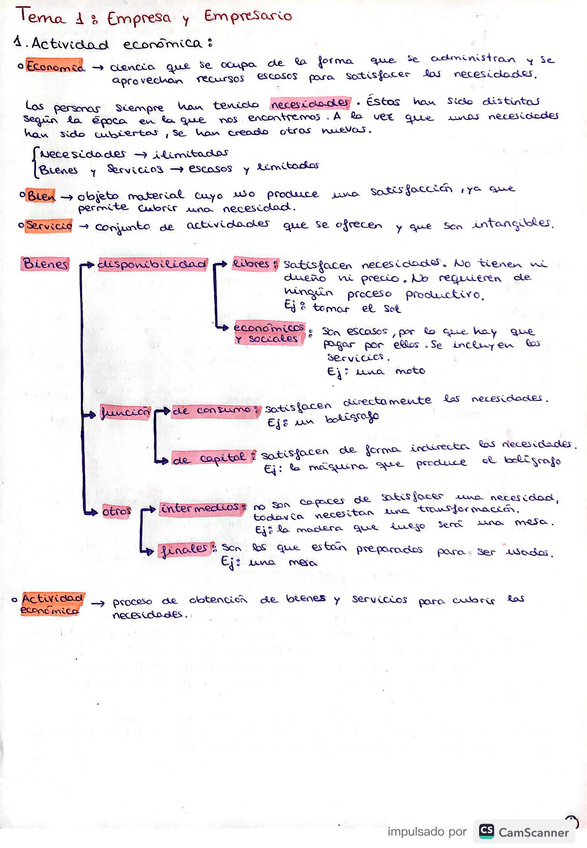 Tema 1: Empresa y Empresario
1. Actividad económica:
° Economía → ciencia que se ocupa de la forma que se administran y se
aprovechan recursos escasos para satisfacer las necesidades.
Las personas siempre han tenido necesidades. Éstas han sido distintas
según la época en la que nos encontremos. A la vez que unas necesidades
han sido cubiertas, se han creado otras nuevas.
Necesidades → ilimitadas
Bienes y Servicios → escasos y limitados
° Bien → objeto material cuyo uso produce una satisfacción, ya que
permite cubrir una necesidad.
° Servicio → conjunto de actividades que se ofrecen y que son intangibles.
Bienes → disponibilidad → libres: satisfacen necesidades. No tienen ni
dueño ni precio. No requieren de
ningún proceso productivo.
Ej: tomar el sol
→ económicos y sociales: son escasos, por lo que hay que
pagar por ellos. Se incluyen los
servicios.
Ej: una moto
→ función → de consumo: satisfacen directamente las necesidades.
Ej: un bolígrafo
→ de capital: satisfacen de forma indirecta las necesidades.
Ej: la máquina que produce el bolígrafo
→ otros → intermedios: no son capaces de satisfacer una necesidad,
todavía necesitan una transformación.
Ej: la madera que luego será una mesa.
→ finales: son los que están preparados para ser usados.
Ej: una mesa
° Actividad económica → proceso de obtención de bienes y servicios para cubrir las
necesidades.
impulsado por CS CamScanner